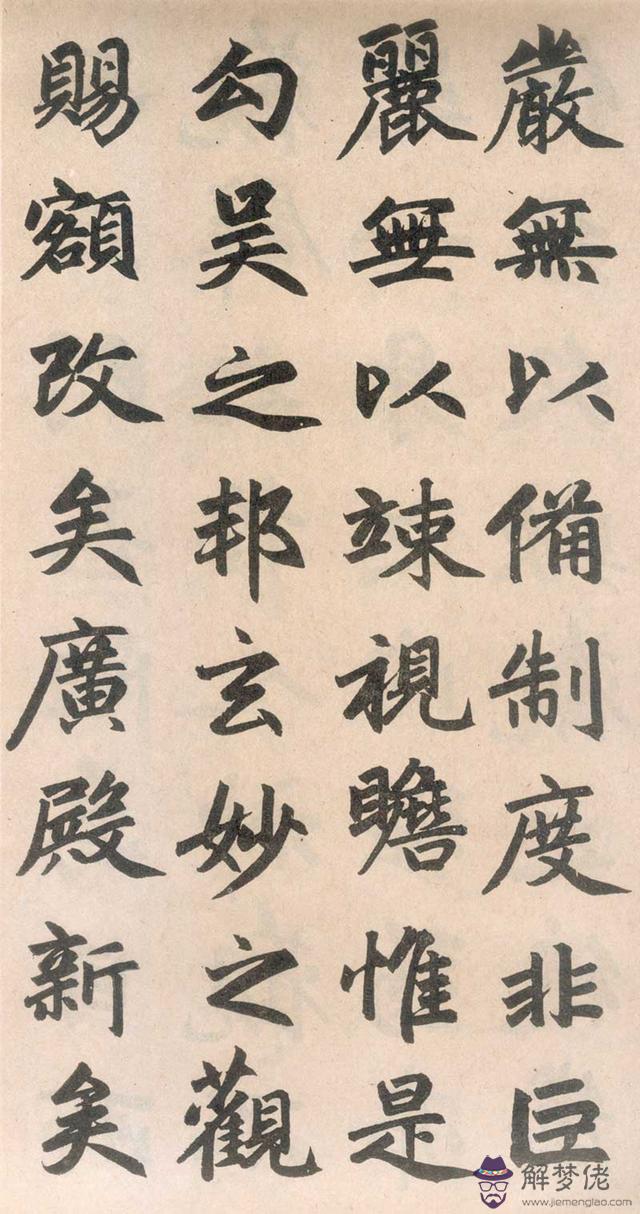 嚴無以備制度非巨
麗無以竦視瞻惟是
勾吴之邦玄妙之觀
賜額改矣廣殿新矣
解梦佬
www.jiemenglao.com